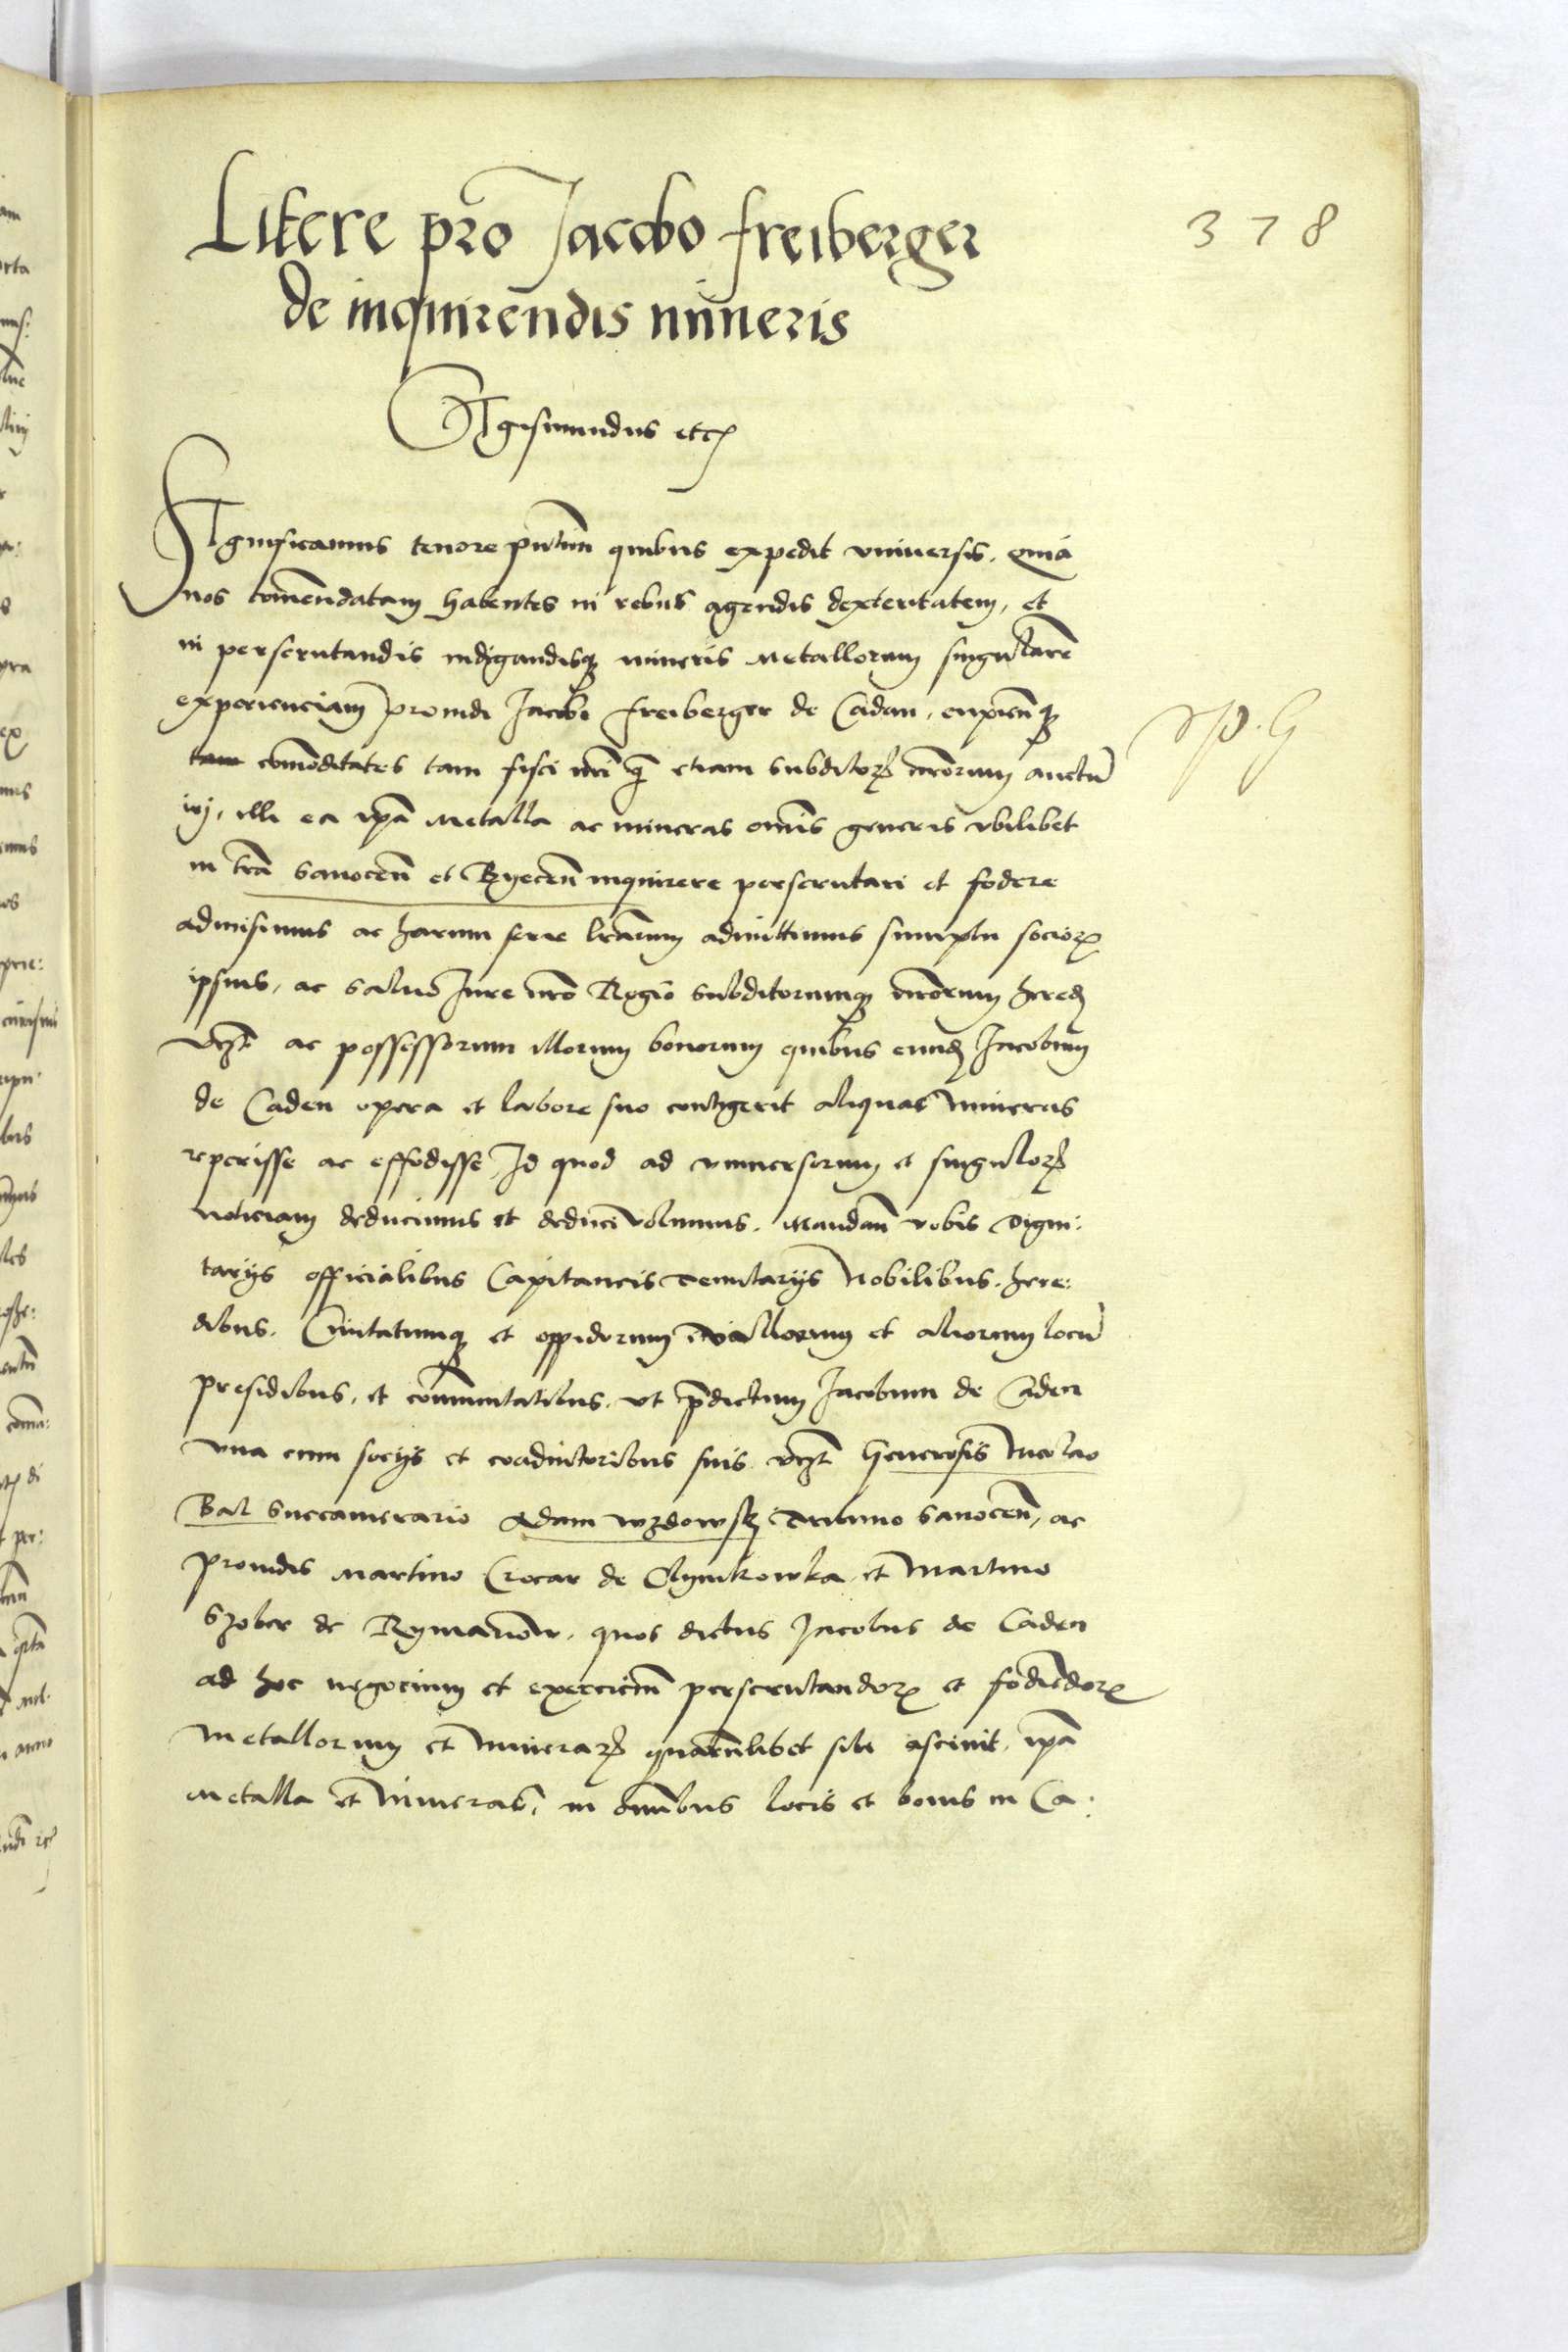 Litere pro Jacobo freiberger
378
de inquirendis mineris
Sigismundus etc
Significamus tenore pñtium quibus expedit vniuersis. quia
nos comendatam habentes in rebus agendis dexteritatem, et
in perscrutandis indigandisq mineris Metallorum singularē
experienciam prouidi Jacobi freiberger de Cadan, cupientesq
tam comoditates tam fisci nr̄i q̄ etiam subditoꝝ nrōrum
illi ea ipā Metalla ac mineras omīs generis vbilibet
in trā Sanoceñ et Byeceñ inquirere perscrutari et fodere
admisimus ac harum serie lrārum admittimus sumptu socioꝝ
ipsius, ac saluo Jure nrō Regio subditorumq nrōrum hered
vcꝫt ac possessorum illorum bonorum quibus eund Jacobum
de Caden opera et labore suo contigerit aliquas Mineras
reperisse ac effodisse, Id quod ad vniuersorum et singuloꝝ
noticiam deducimus et deduci volumus. Mandañ vobis digni:
tarijs officialibus Capitaneis Tenutarijs Nobilibus. here:
dibus. Ciuitatumq et oppidorum villarum et aliorum locū
presidibus, et comunitatibus. vt p̄dictum Jacobum de Caden
vna cum socijs et coadiutoribus suis vcꝫt Generosis Nicolao
Bal Succamerario Adam wzdowskj Tribuno Sanoceñ, ac
prouidis Martino Crocar de Olynikowka et Martino
Szober de Rymanow. quos dictus Jacobus de Caden
ad hoc negocium et exerciciū perscrutandoꝝ et fodiēdoꝝ
Metallorum et Mineraꝝ quarūlibet sibi asciuit, ipā
Metalla et Mineras, in omībus locis et bonis in Ca: